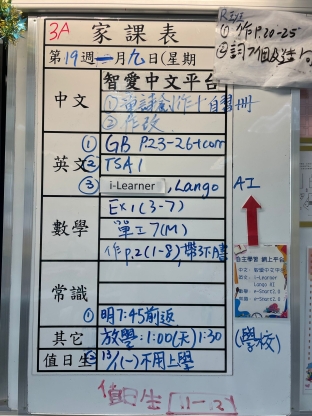 3A 家課表
第19週 一月九日(星期
智愛中文平台
中文
①童謠創作+自習冊
②作改
英文
① GB P23-26+corr
② TSA1
③ i-Learner, Lango AI
數學
Ex1(3-7)
單工7(M)
作p.2(1-8)帶3下書
常識
①明7:45前返
其它
放學:1:00(天)1:30
(學校)
值日生
②13/1(一)不用上學
值日生 [.1-.2]
R班
① 作P.20-25
② 詞7個及造句
自主學習 網上平台
中文: 智愛中文平台
英文: i-Learner
Lango AI
數學: e-Smart2.0
常識: e-Smart2.0